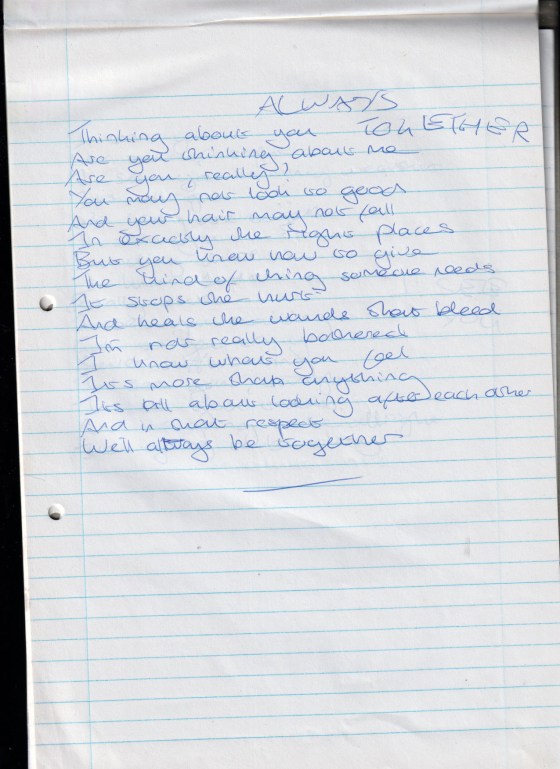 ALWAYS
TOGETHER
Thinking about you
Are you thinking about me
Are you, really?
You may not look so good
And your hair may not fall
In exactly the right places
But you know how to give
The kind of thing someone needs
It stops the hurt
And heals the wounds that bleed
I'm not really bothered
I know what you feel
It's more than anything
It's all about looking after each other
And in that respect
We'll always be together